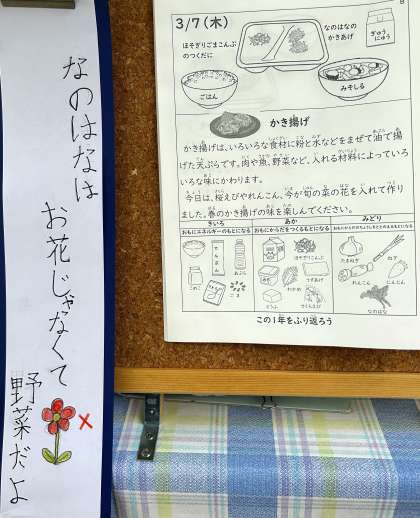 なのはなは
お花じゃなくて
野菜だよ
3/7(木)
ほそぎりごまこんぶ
のつくだに
なのはなの
かきあげ
ぎゅう
にゅう
ごはん
みそしる
かき揚げ
かき揚げは、いろいろな食材に粉と水などをまぜて油で揚
げた天ぷらです。肉や魚、野菜など、入れる材料によっていろ
いろな味にかわります。
今日は、桜えびやれんこん、今が旬の菜の花を入れて作り
ました。春のかき揚げの味を楽しんでください。
きいろ
あか
みどり
おもにエネルギーのもとになる
おもにからだをつくるもとになる
ほそぎりこんぶ
わかめ
とうふ
ごま
たまねぎ
ねぎ
れんこん
にんじん
なのはな
この1年をふり返ろう